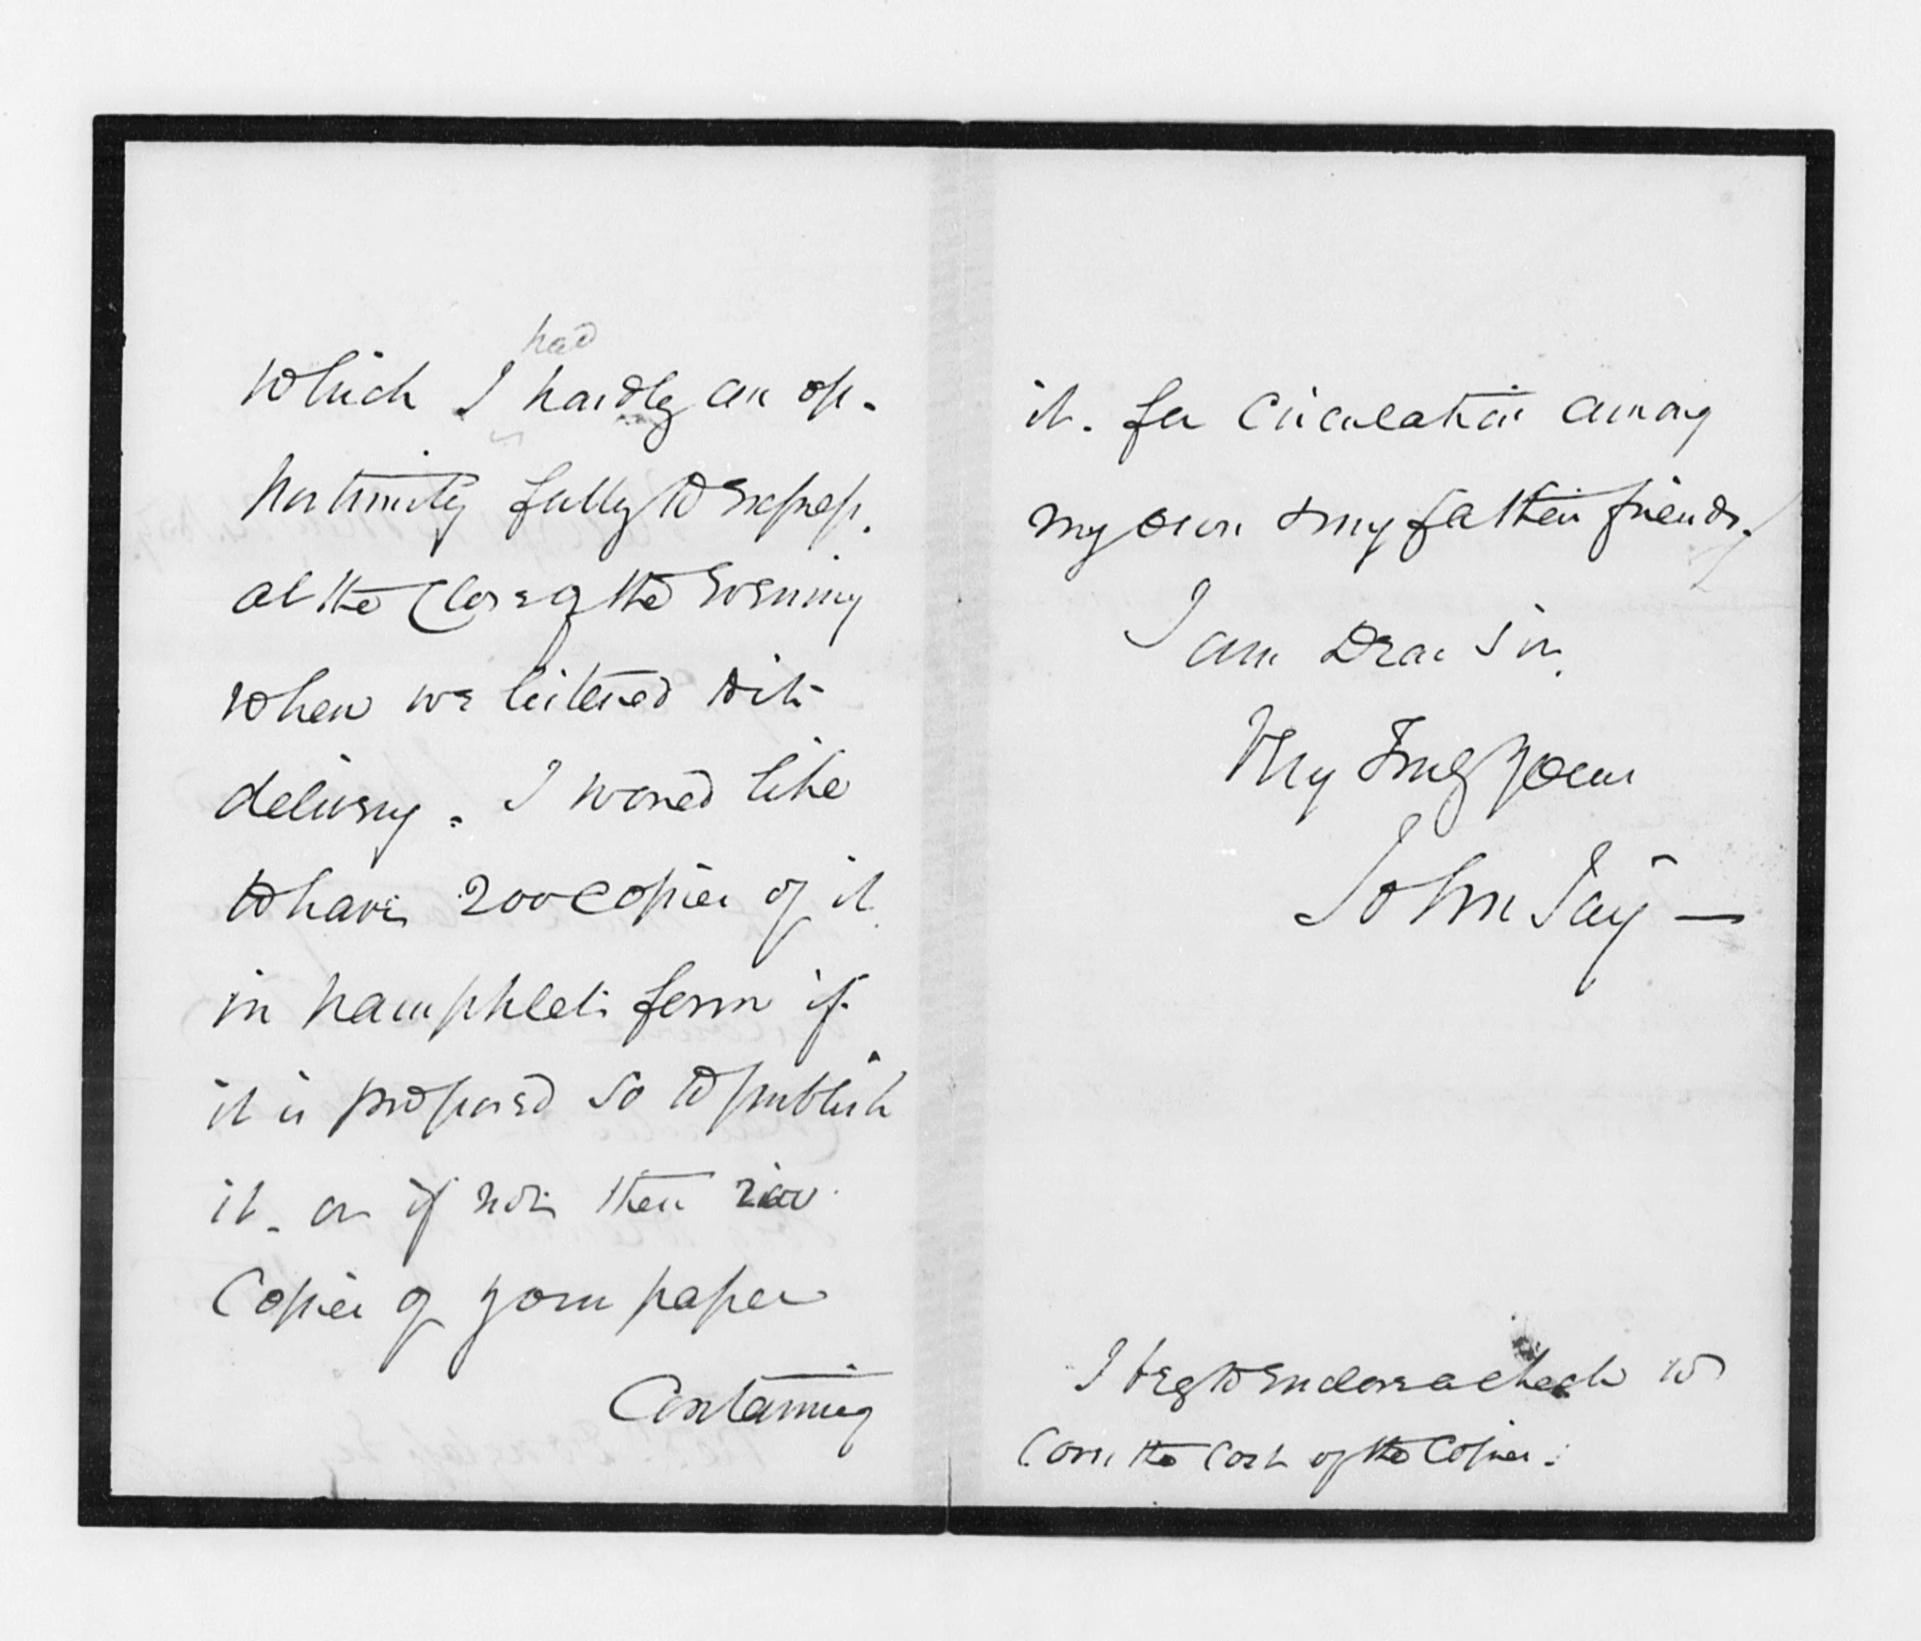 had
which I hardly an op-
portunity fully to express.
at the close of the evening
when we listened to its
delivery. I would like
to have 200 copies of it
in pamphlet form if
it is proposed so to publish
it. or if not then 200
copies of your paper
Containing
it. for circulation among
my own & my father's friends.
I am Dear Sir
Very truly yours
John Jay —
I beg to enclose a check to
cover the cost of the copies.